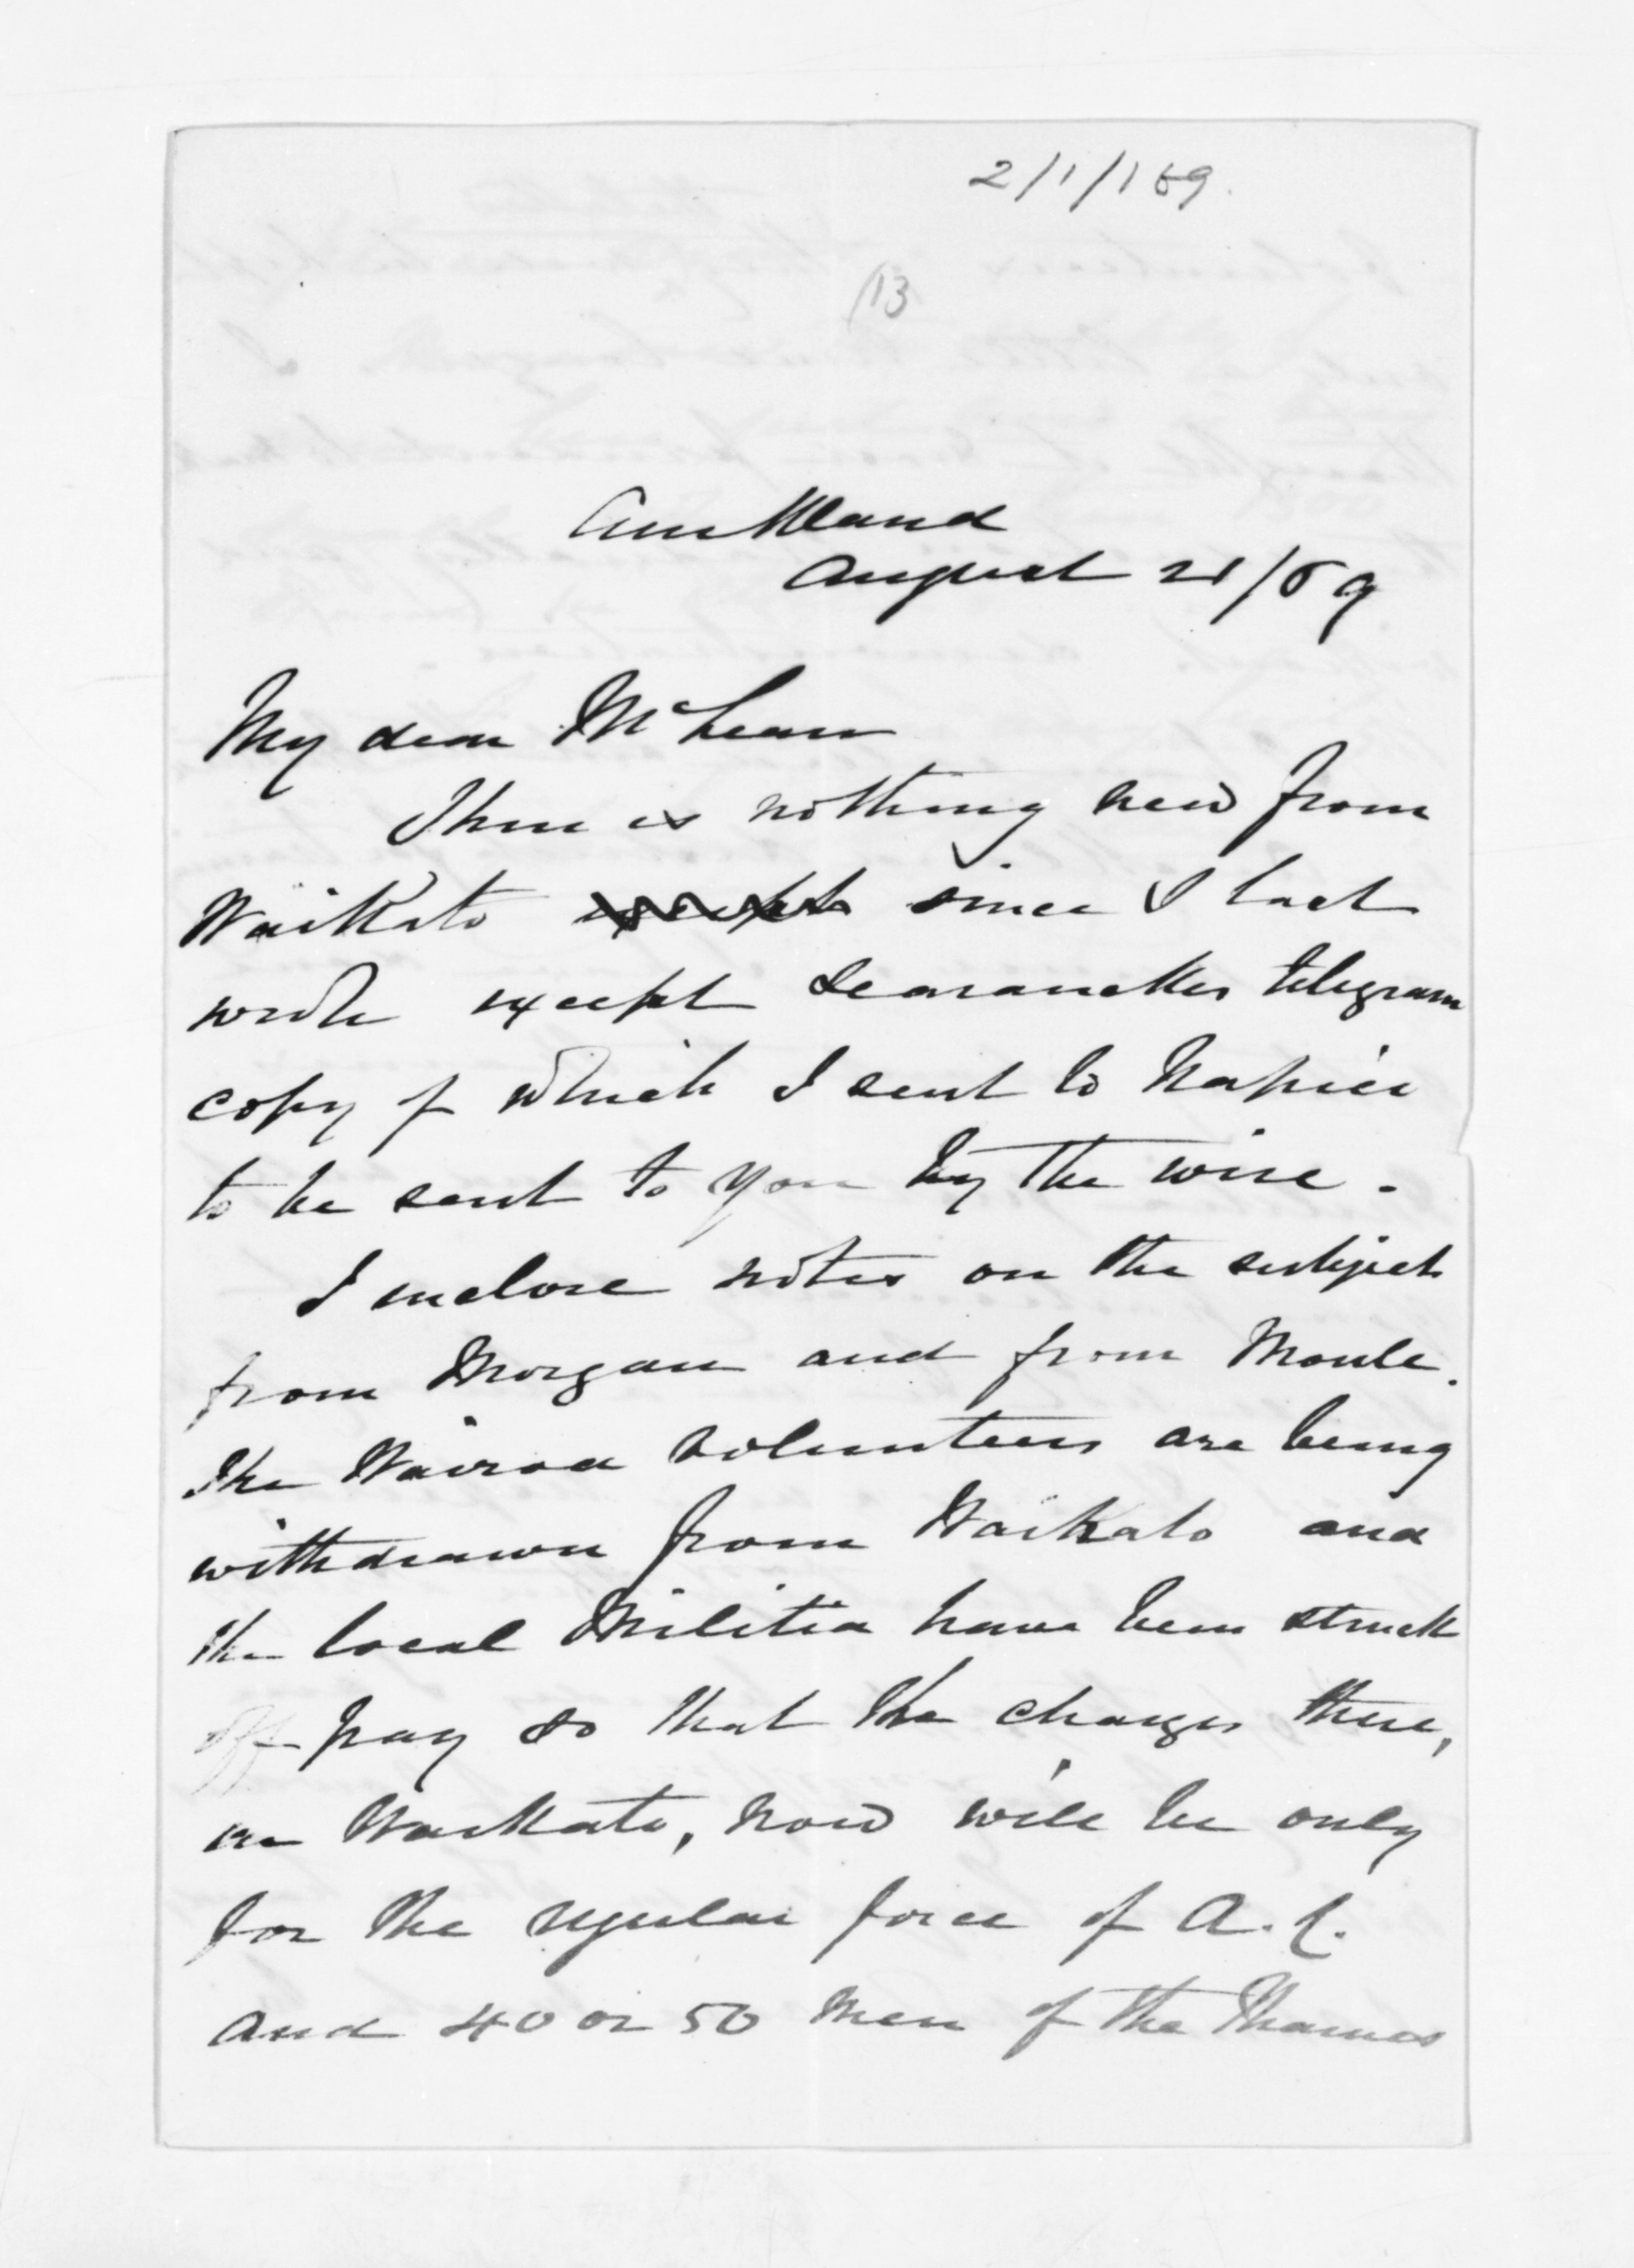 2/1/169.
(13
Auckland
August 21/69
My dear McLean
There is nothing new from
Waikato except since I last
wrote except Searanckes telegram
copy of which I sent to Napier
to be sent to you by the wire.
I inclose notes on the subject
from Morgan and from Moule.
The Wairoa volunteers are being
withdrawn from Waikato and
the local Militia have been struck
off pay so that the charges there,
in Waikato, now will be only
for the regular force of A.C.
and 40 or 50 men of the Thames